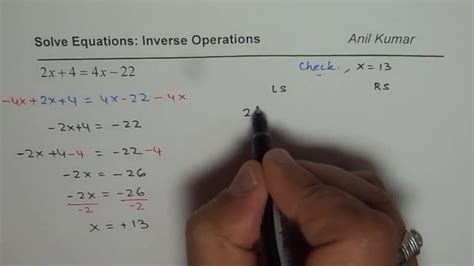 Solve Equations: Inverse Operations Anil Kumar
2x + 4 = 4x − 22
Check, x = 13
LS RS
-4x + 2x + 4 = 4x - 22 - 4x
2
-2x+4 = -22
-2x+4-4 = -22-4
-2x = -26
-2x/-2 = -26/-2
x = +13